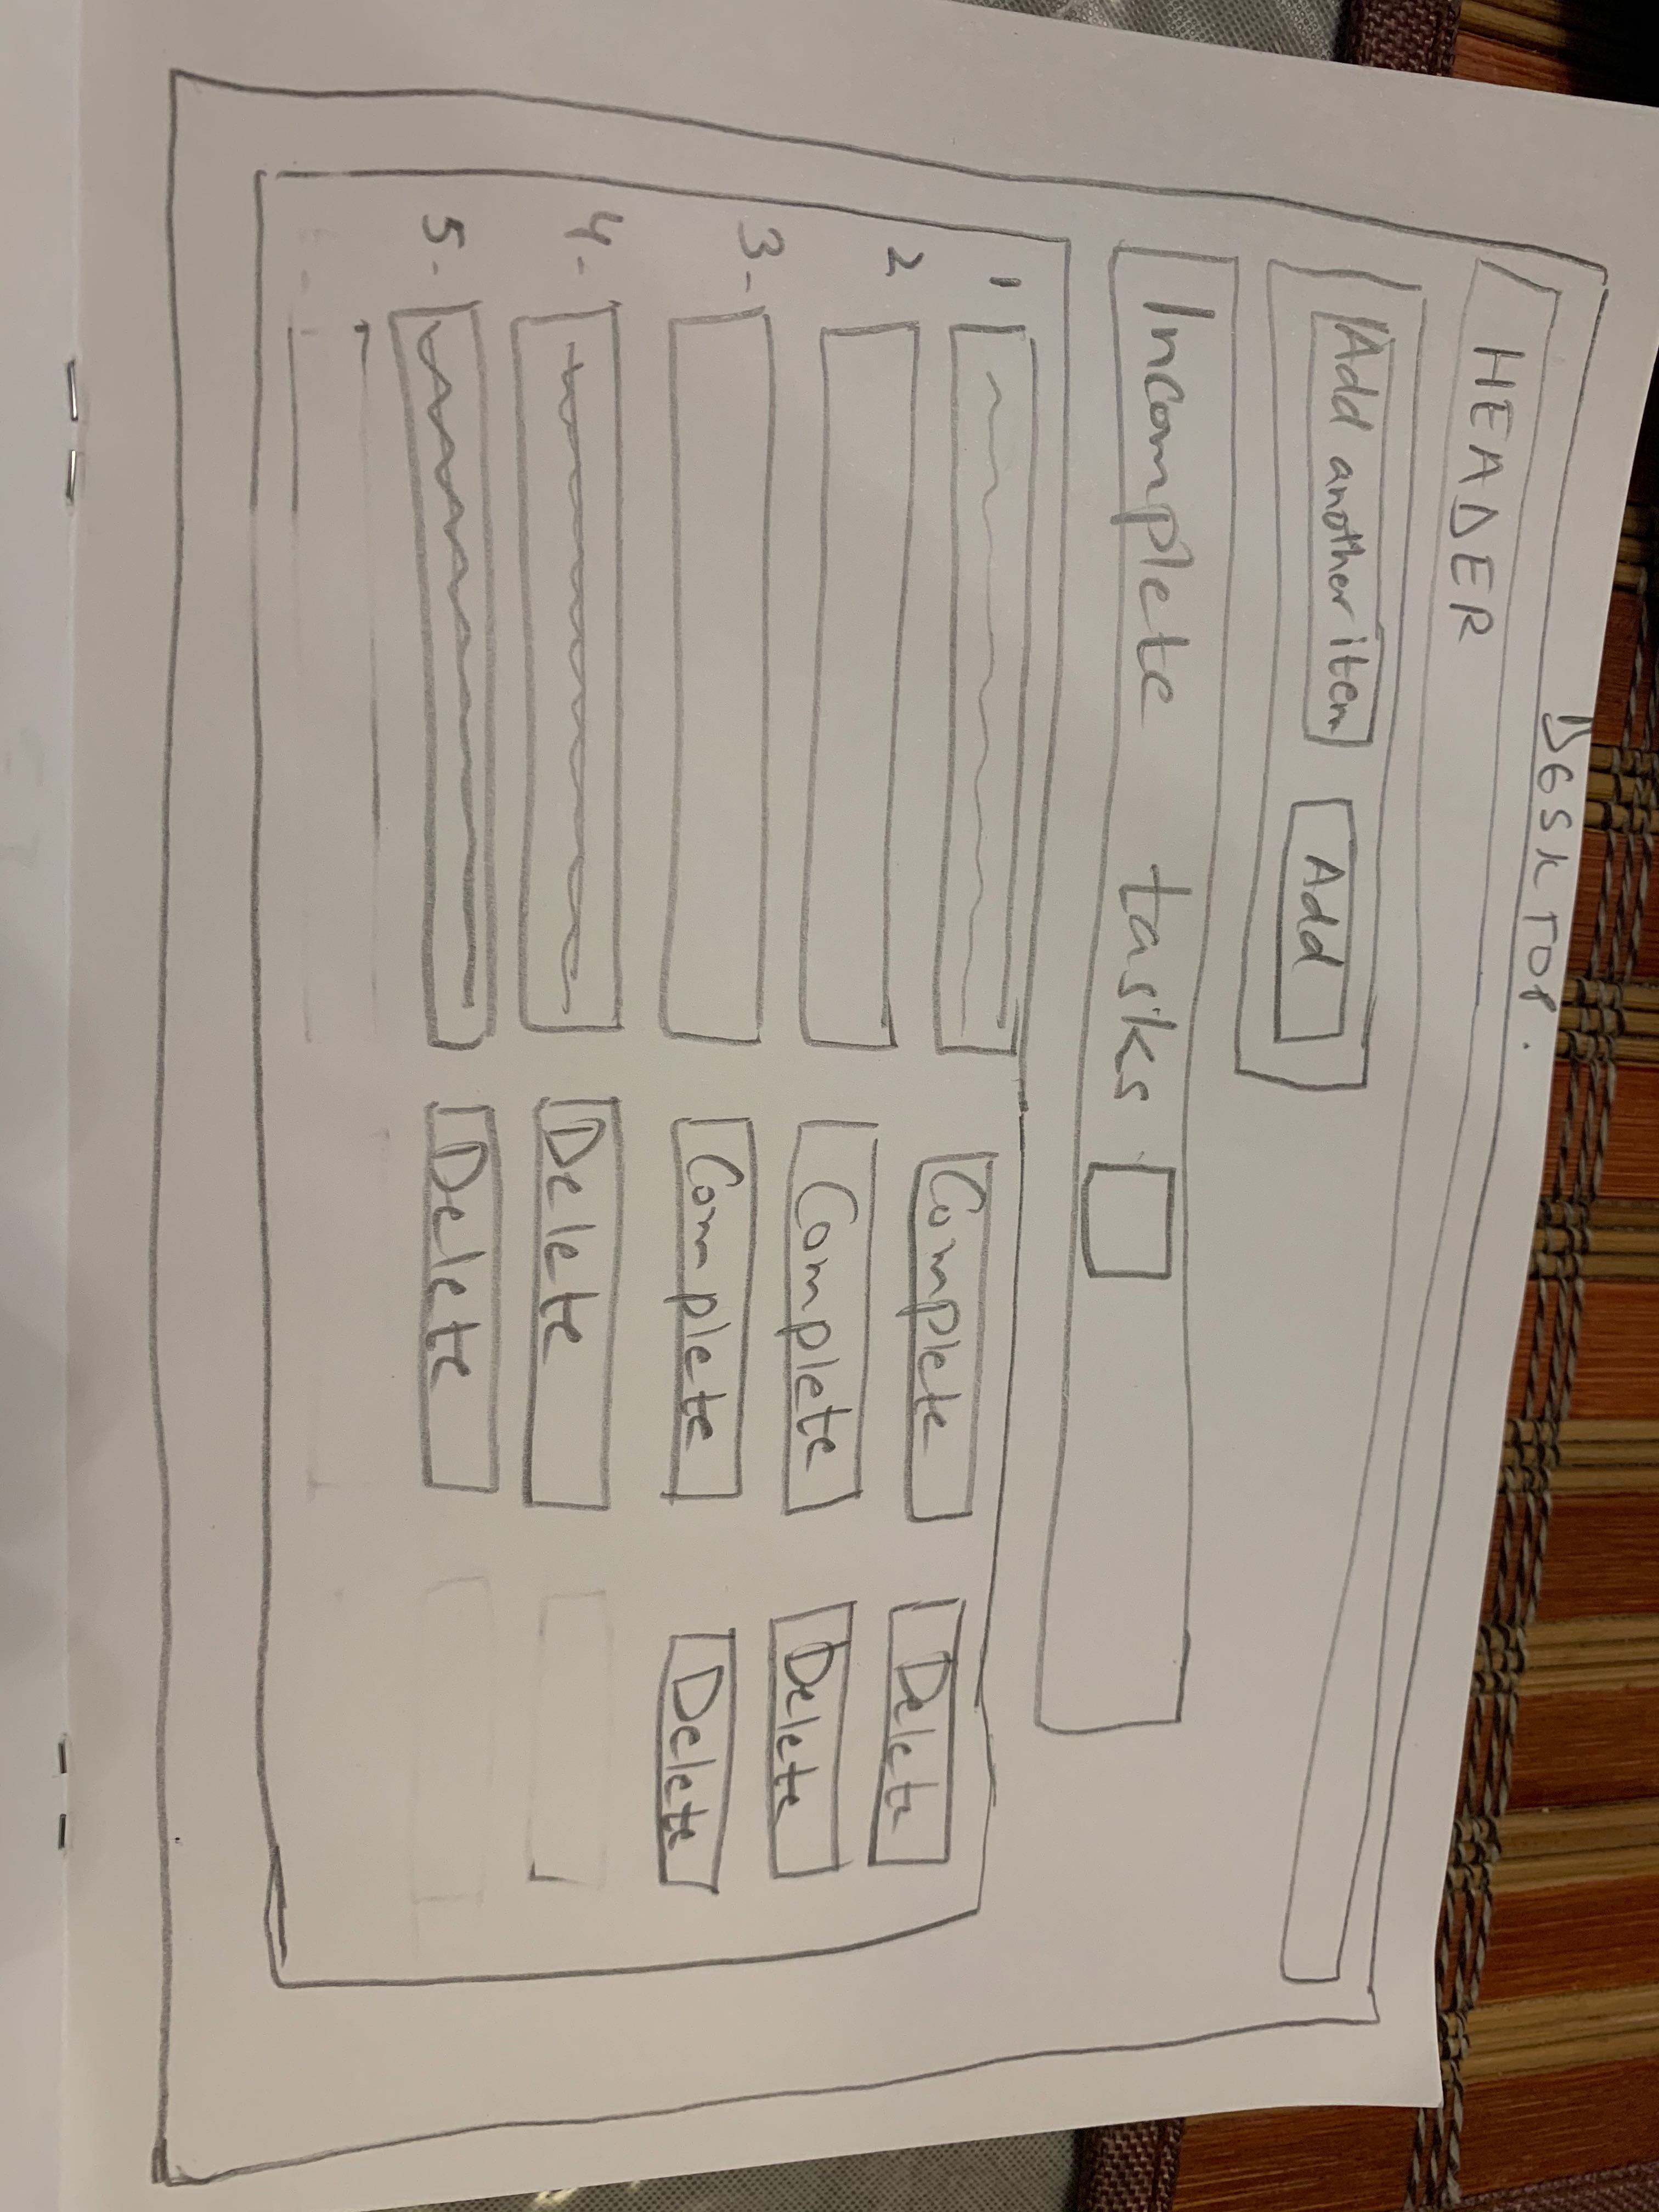 DESKTOP.
HEADER
Add another item Add
Incomplete tasks
1 Complete Delete
2 Complete Delete
3- Complete Delete
4- Delete
5- Delete